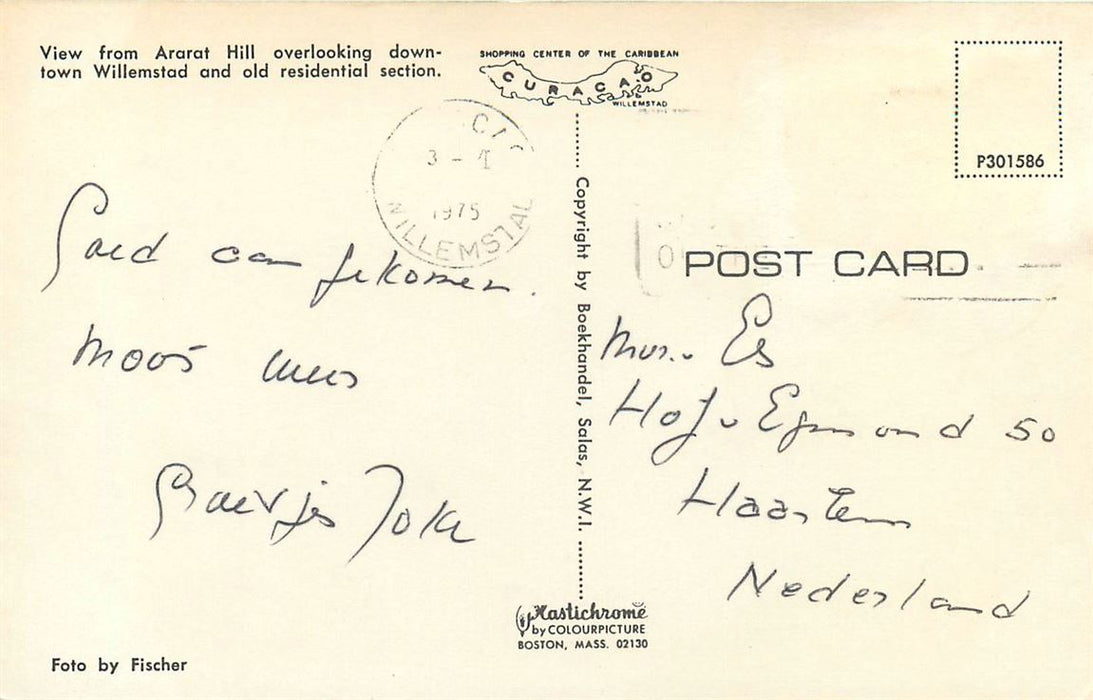 View from Ararat Hill overlooking down-
town Willemstad and old residential section.
SHOPPING CENTER OF THE CARIBBEAN
CURAÇAO
WILLEMSTAD
3 - 1
1975
WILLEMSTAD
P301586
Copyright by Boekhandel, Salas, N.W.I.
POST CARD
Goed aan gekomen.
Moos
Groetjes Joke
Es
Hof v Egmond 50
Haarlem
Nederland
Plastichrome
by COLOURPICTURE
BOSTON, MASS. 02130
Foto by Fischer